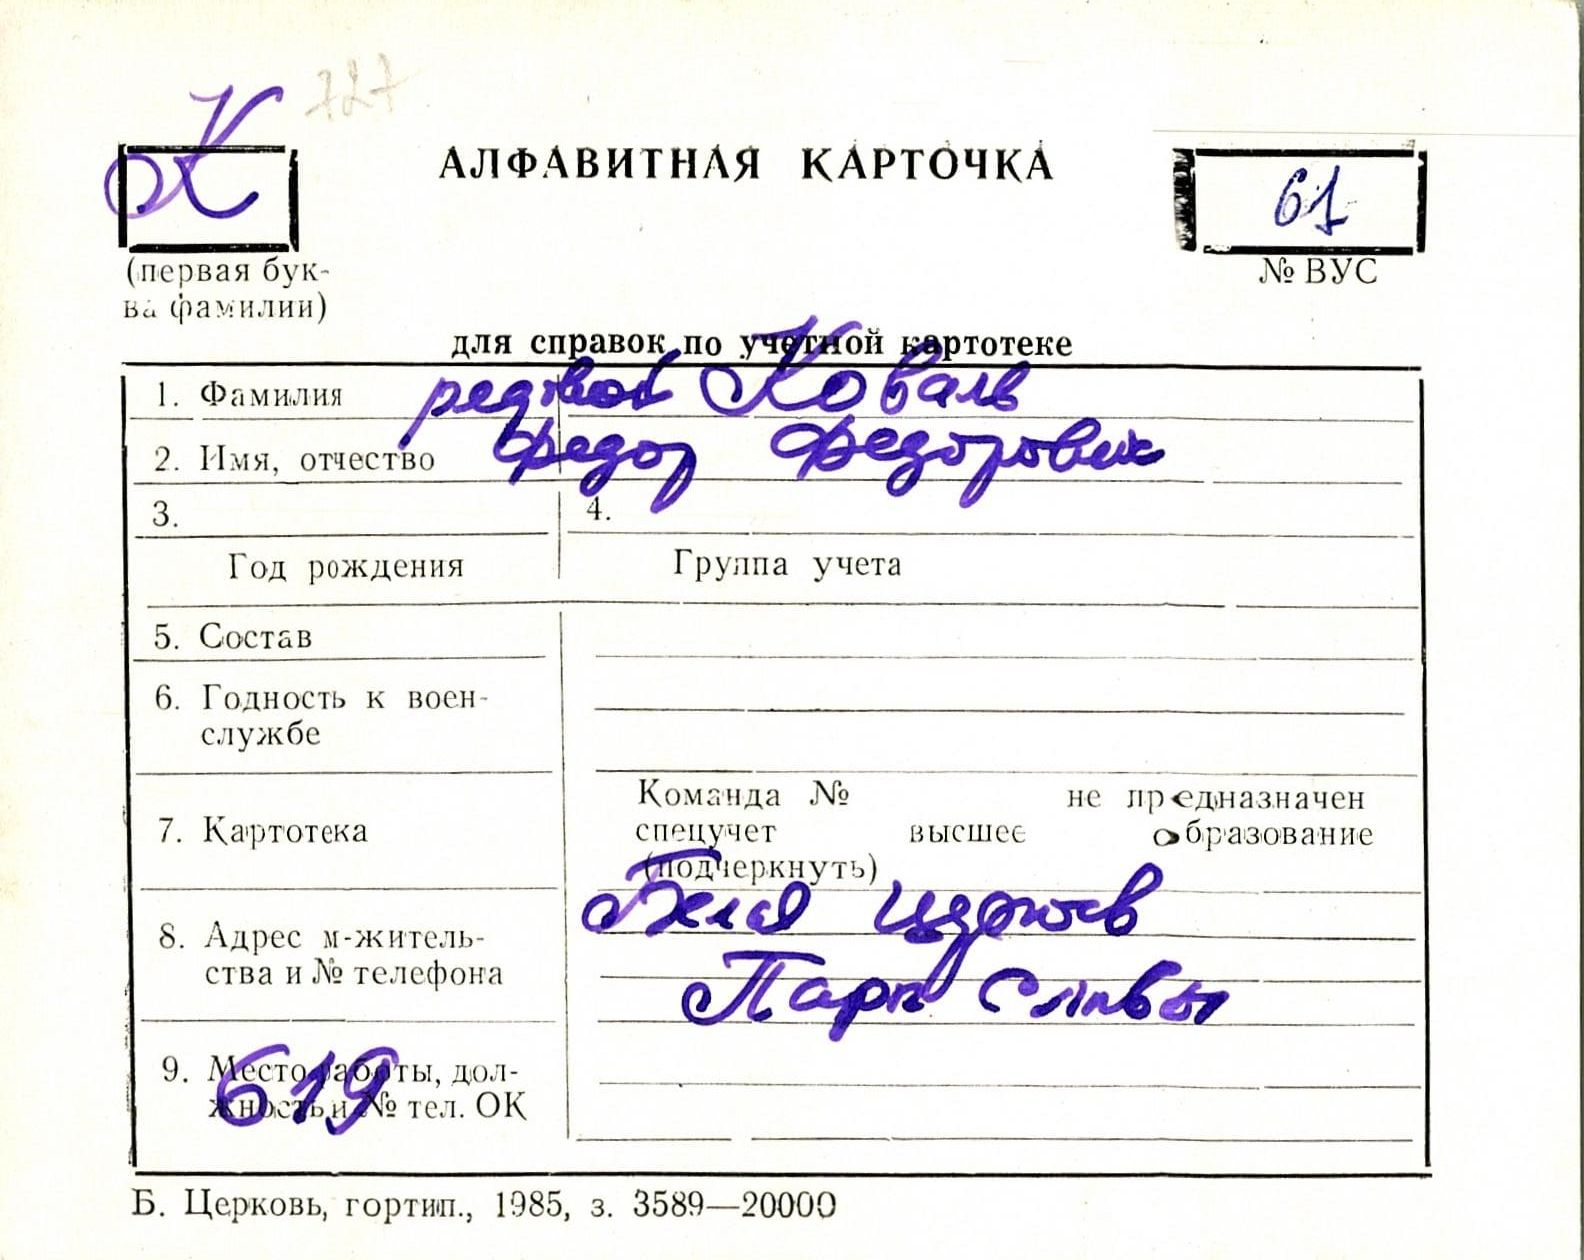 К 727
АЛФАВИТНАЯ КАРТОЧКА
61
(первая бук-
ва фамилии)
№ ВУС
для справок по учетной картотеке
1. Фамилия рядовой Коваль
2. Имя, отчество Федор Федорович
3. 4.
Год рождения Группа учета
5. Состав
6. Годность к воен-
службе
Команда № не предназначен
7. Картотека спецучет высшее образование
(подчеркнуть)
Белая Церковь
8. Адрес м-житель-
ства и № телефона
Парк Славы
9. Место работы, дол-
жность и № тел. ОК
619
Б. Церковь, гортип., 1985, з. 3589—20000